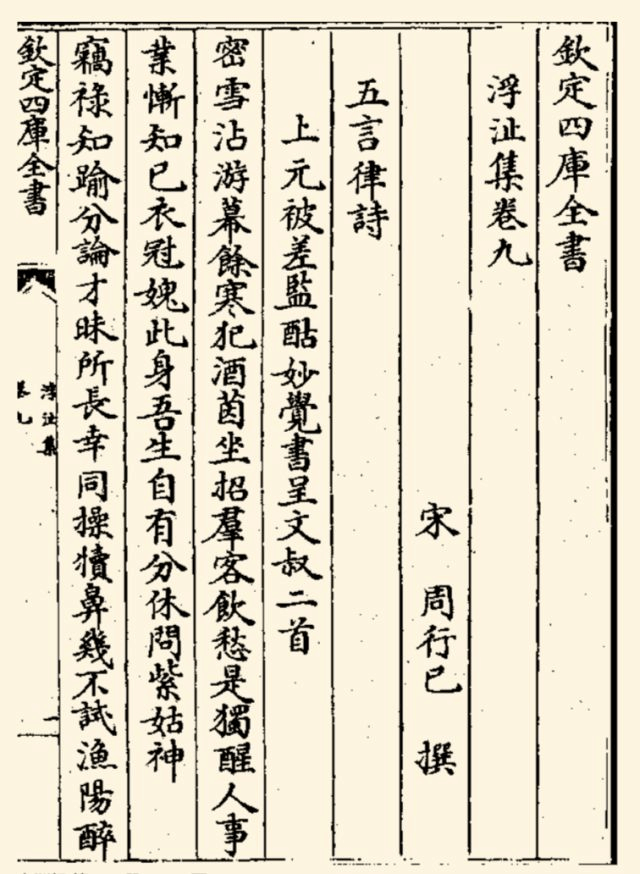 欽定四庫全書
浮沚集卷九
宋 周行已 撰
五言律詩
上元被差監酤妙覺書呈文叔二首
密雪沾游幕餘寒犯酒茵坐招羣客飲愁是獨醒人事
業慚知已衣冠媿此身吾生自有分休問紫姑神
竊祿知踰分論才昧所長幸同操犢鼻幾不試漁陽醉
欽定四庫全書
浮沚集
卷九
一